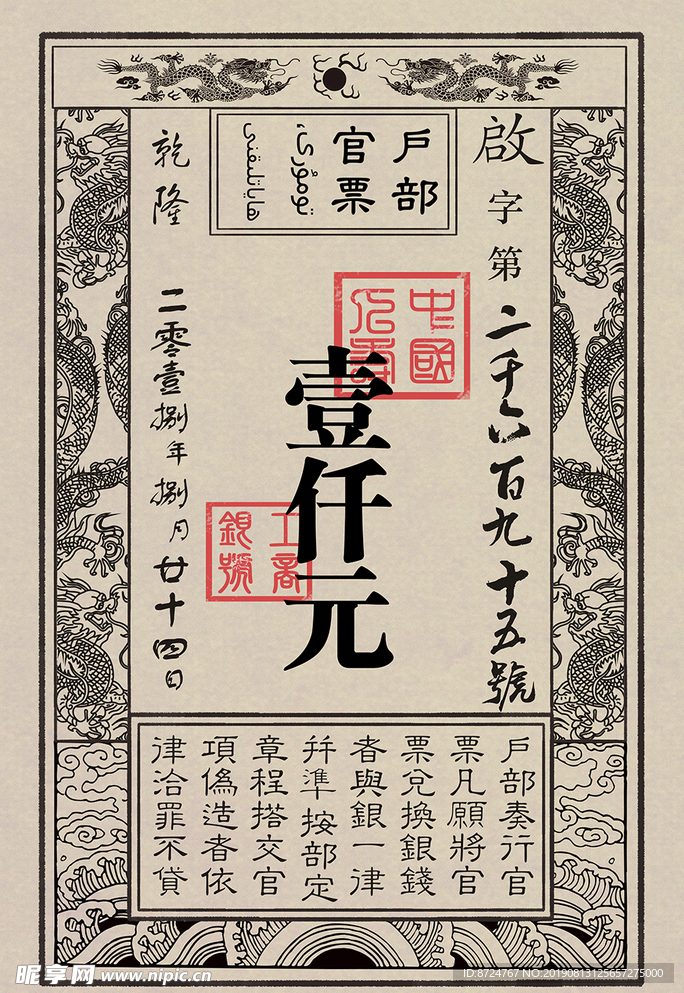 啟字第二千六百九十五號
戶部
官票
中國
壹仟元
工商
銀號
乾隆
二零壹捌年捌月廿十四日
戶部奏行官
票凡願將官
票兌換銀錢
者與銀一律
并準按部定
章程搭交官
項偽造者依
律治罪不貸
昵享网 www.nipic.cn
ID:8724767 NO:20190813125657275000